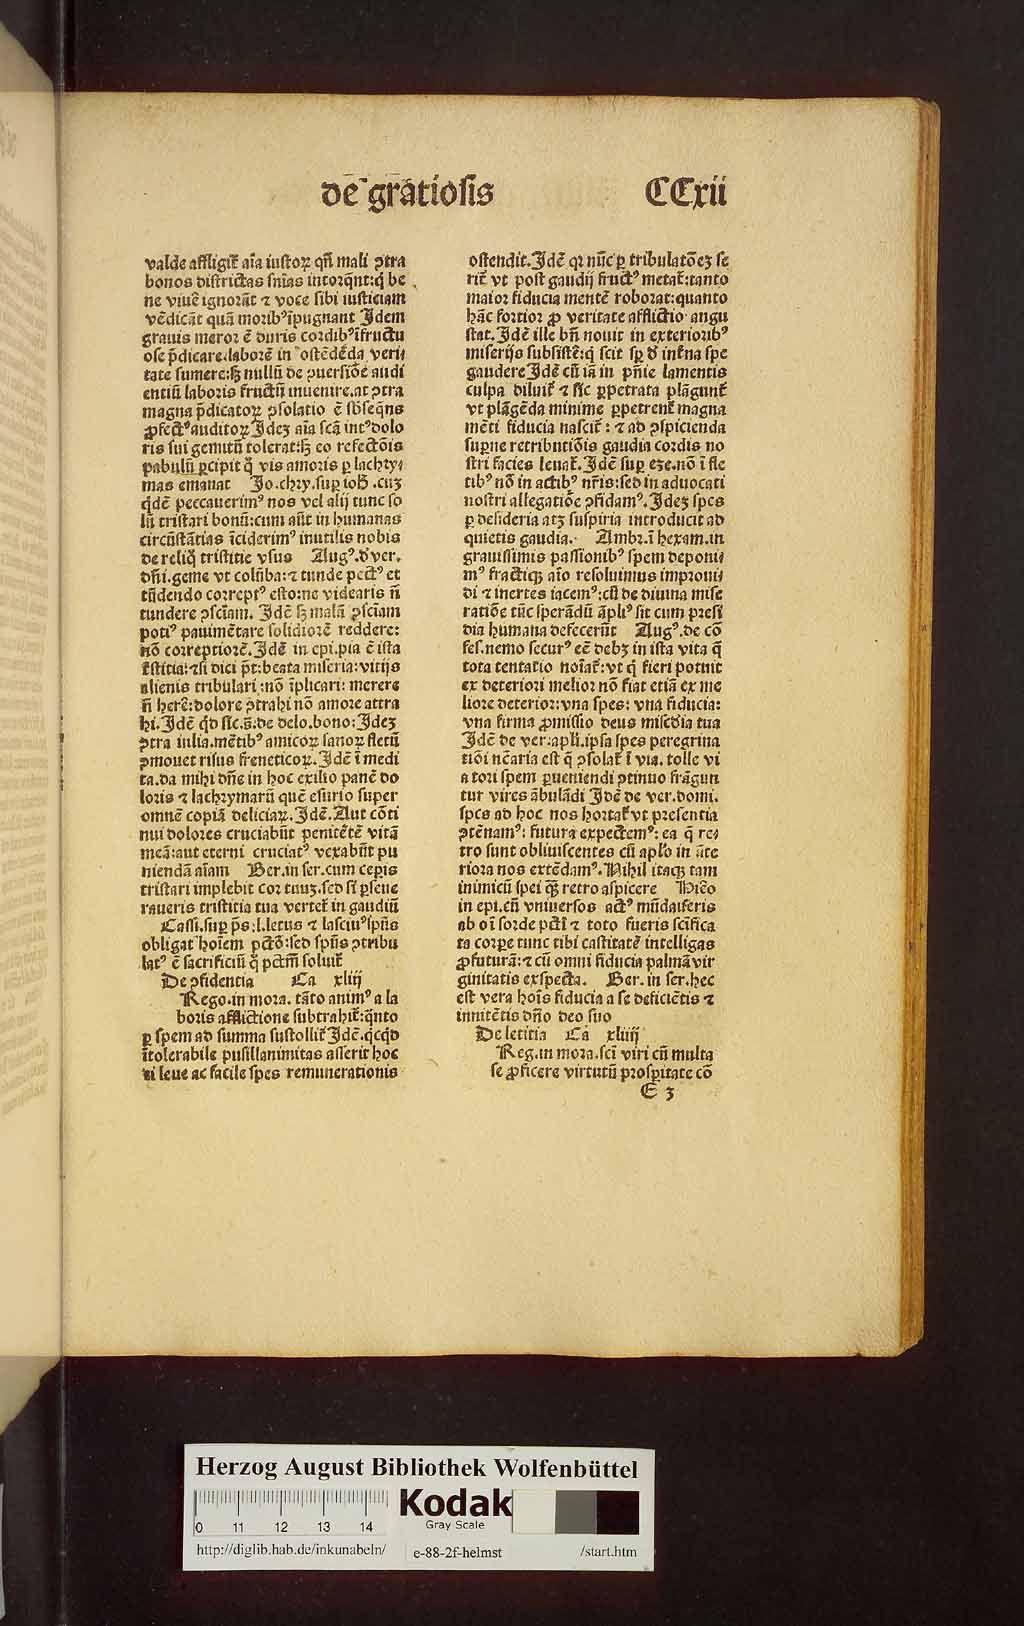 de gratiosis CCxii
valde affligit᷑ aīa iustoꝝ qn̄ mali ꝯtra
bonos districtas sn̄ias intorq̄nt:q̇ be
ne viuē ignorāt ⁊ voce sibi iusticiam
vēdicāt quā moribꝰ īpugnant Idem
grauis meror ē duris cordibꝰ īfructu
ose p̄dicare.laborē in ostēdēda veri⸗
tate sumere:sꝫ nullū de ꝯuersiōe audi
entiū laboris fructū inuenire.at ꝯtra
magna p̄dicatoꝝ ꝯsolatio ē sb̄seq̄ns
ꝓfectꝰ auditoꝝ Ideꝫ aīa scā intꝰ dolo
ris sui gemitū tolerat:sꝫ eo refectōis
pabulū ꝑcipit q̊ vis amoris ꝑ lachry⸗
mas emanat Jo.chry.suꝑ ioh̄.cuꝫ
q̇dē peccauerimꝰ nos vel alij tunc so
lū tristari bonū:cum aūt in humanas
circūstātias īciderimꝰ inutilis nobis
de reliq̊ tristitie vsus Augꝰ.ď ver.
dn̄i.geme vt colūba:⁊ tunde pectꝰ et
tūdendo correptꝰ esto:ne videaris n̄
tundere ꝯsciam. Idē sꝫ malā ꝯsciam
potiꝰ pauimētare solidiorē reddere:
nō correptiorē.Idē in epi.pia ē ista
t᷑stitia:⁊si dici pōt:beata miseria:vitijs
alienis tribulari:nō īplicari:merere
n̄ herē:dolore ꝯtrahi nō amore attra
hi.Idē qd̓ sic.ā:de delo.bono:Ideꝫ
ꝯtra iulia.mētibꝰ amicoꝝ sanoꝝ fletū
ꝯmouet risus freneticoꝝ.Idē ī medi
ta.da mihi dn̄e in hoc exilio panē do
loris ⁊ lachrymarū quē esurio super
omnē copiā deliciaꝝ.Idē.Aut cōti
nui dolores cruciabūt penitētē vitā
meā:aut eterni cruciatꝰ vexabūt pu
niendā aīam Ber.in ser.cum cepis
tristari implebit cor tuuꝫ.sed si ꝑseue
raueris tristitia tua vertet᷑ in gaudiū
Cassi.suꝑ ps̄:l.letus ⁊ lasciuꝰ spūs
obligat hoīem pctō:sed spūs ꝯtribu
latꝰ ē sacrificiū q̊ pctm̄ soluit᷑
De ꝯfidentia Ca xliij
Rego.in mora. tāto animꝰ a la
boris afflictione subtrahit᷑:q̄nto
ꝑ spem ad summa sustollit᷑ Idē.qcq̇d
ītolerabile pusillanimitas asserit hoc
ei leue ac facile spes remunerationis
ostendit.Idē qꝛ nūc ꝑ tribulatōeꝫ se
rit᷑ vt post gaudij fructꝰ metat᷑:tanto
maior fiducia mentē roborat:quanto
hāc fortior ꝓ veritate afflictio angu
stat.Idē ille bn̄ nouit in exterioribꝰ
miserijs subsistē:q̇ scit sꝑ ď int᷑na spe
gaudere Idē cū iā in pn̄ie lamentis
culpa diluit᷑ ⁊ sic ꝑpetrata plāgunt᷑
vt plāgēda minime ꝑpetrent᷑ magna
mēti fiducia nascit᷑:⁊ ad ꝯspicienda
suꝑne retributiōis gaudia cordis no
stri facies leuat᷑.Idē suꝑ eze.nō ī fle
tibꝰ nō in actibꝰ nr̄is:sed in aduocati
nostri allegatiōe ꝯfidamꝰ.Ideꝫ spes
ꝑ desideria atꝫ suspiria introducit ad
quietis gaudia. Ambr.ī hexam.in
grauissimis passionibꝰ spem deponi⸗
mꝰ fractiqꝫ aīo resoluimus improui⸗
di ⁊ inertes iacemꝰ:cū de diuina mise
ratiōe tūc sperādū āpliꝰ sit cum presi
dia humana defecerūt Augꝰ.de cō
fes.nemo securꝰ eē debꝫ in ista vita q̄
tota tentatio noīat᷑:vt q̇ fieri potuit
ex deteriori melior nō fiat etiā ex me
liore deterior:vna spes:vna fiducia:
vna firma ꝓmissio deus mīsc̄dia tua
Idē de ver.apli̇.ipsa spes peregrina
tiōi nc̄aria est q̄ ꝯsolat᷑ ī via.tolle vi
atori spem ꝑueniendi ꝯtinuo frāgun
tur vires ābulādi Idē de ver.domi.
spes ad hoc nos hortat᷑ vt presentia
ꝯtēnamꝰ:futura expectemꝰ:ea q̄ re⸗
tro sunt obliuiscentes cū aplo in āte
riora nos extēdamꝰ.Nihil itaqꝫ tam
inimicū spei qꝫ retro aspicere Hiēo
in epi.cū vniuersos actꝰ mūdaueris
ab oī sorde pctī ⁊ toto fueris scīfica
ta corꝑe tunc tibi castitatē intelligas
ꝓfuturā:⁊ cū omni fiducia palmā vir
ginitatis exspecta. Ber.in ser.hec
est vera hoīs fiducia a se deficiētis ⁊
innitētis dn̄o deo suo
De letitia Ca xliiij
Reg.in mora.scī viri cū multa
se ꝓficere virtutū prosꝑitate cō
E 3
Herzog August Bibliothek Wolfenbüttel
0 11 12 13 14
Kodak
Gray Scale
http://diglib.hab.de/inkunabeln/ e-88-2f-helmst /start.htm